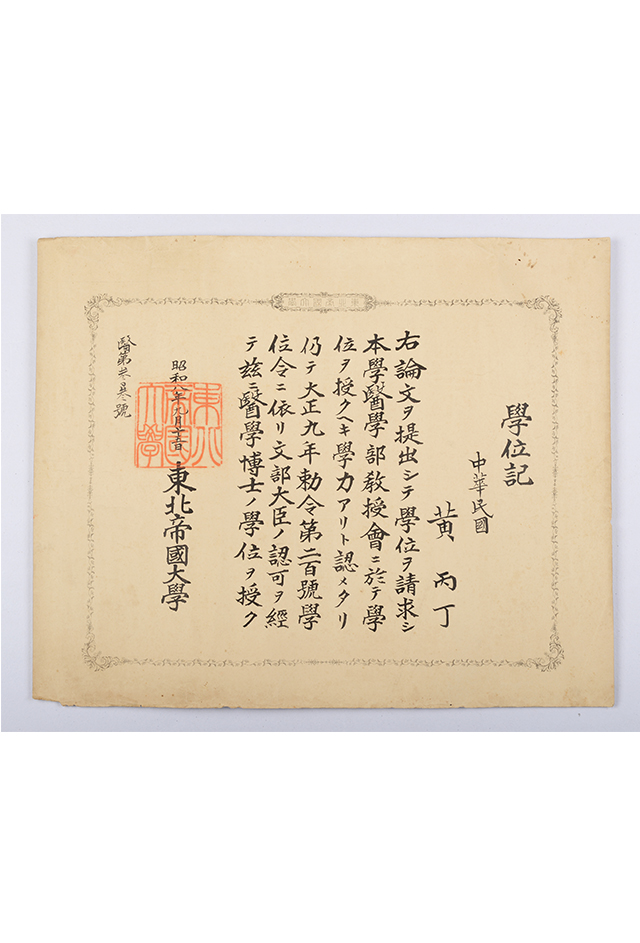 學位記
中華民國
黃丙丁
右論文ヲ提出シテ學位ヲ請求シ
本學醫學部教授會ニ於テ學
位ヲ授クヘキ學力アリト認メタリ
仍テ大正九年勅令第二百號學
位令ニ依リ文部大臣ノ認可ヲ經
テ玆ニ醫學博士ノ學位ヲ授ク
昭和八年九月
東北帝國大學
東北
帝國
大學
醫第號